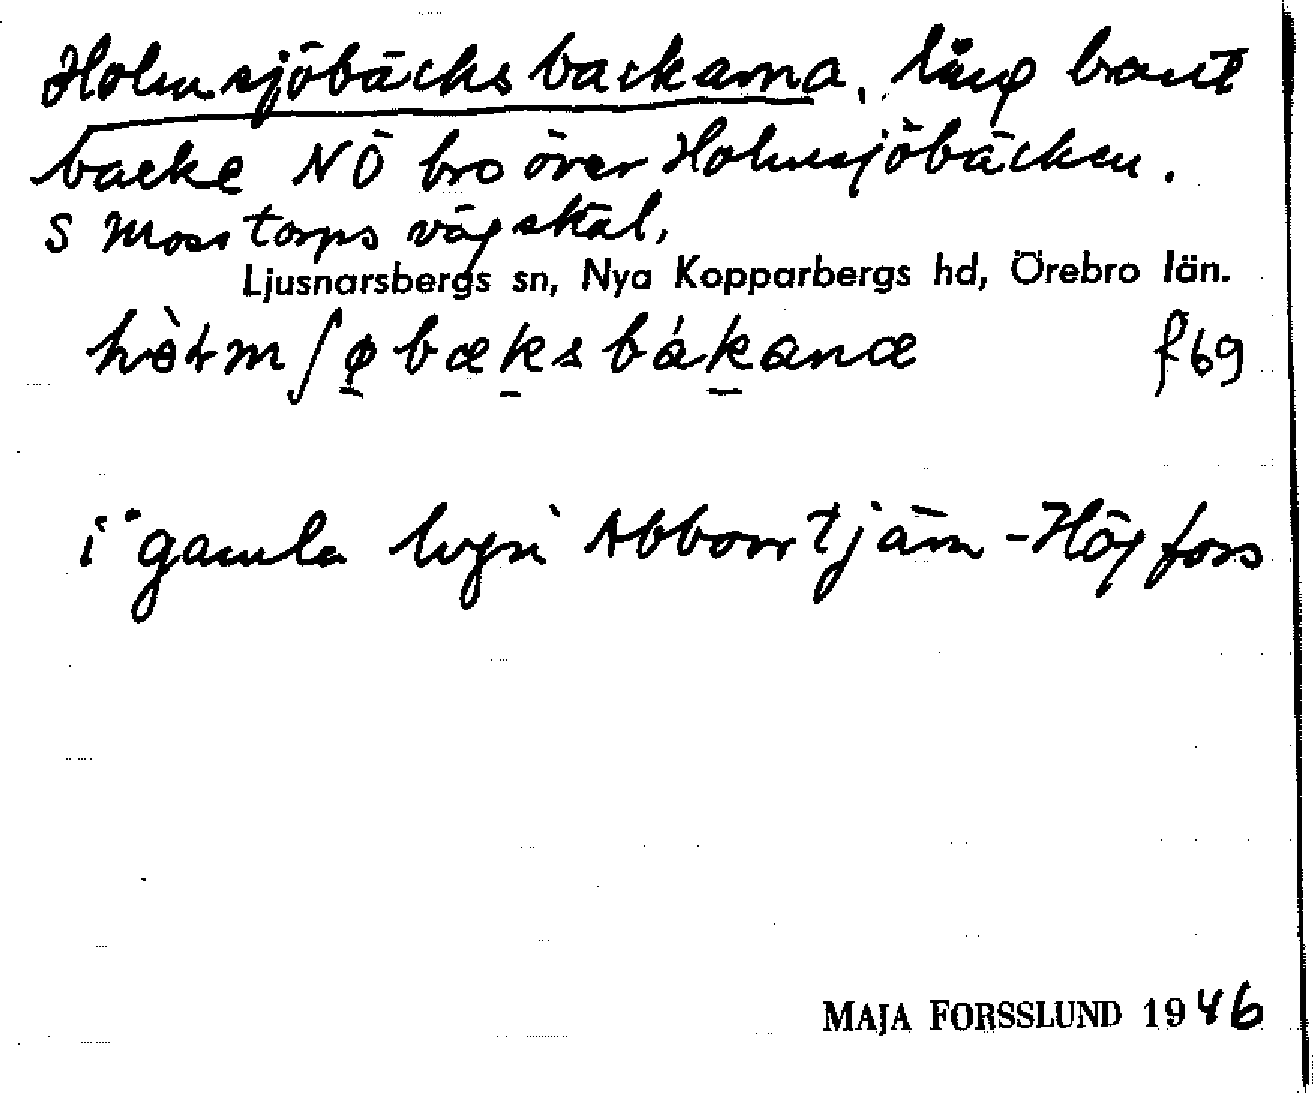 Holmsjöbäcksbackarna, lång brant
backe NÖ bro över Holmsjöbäcken.
S Mosstorps vägskäl,
Ljusnarsbergs sn, Nya Kopparbergs hd, Örebro län.
hòłmʃø̱bæḵsbáḵanæ f69
i gamla Abborrtjärn-Högfors
MAJA FORSSLUND 1946